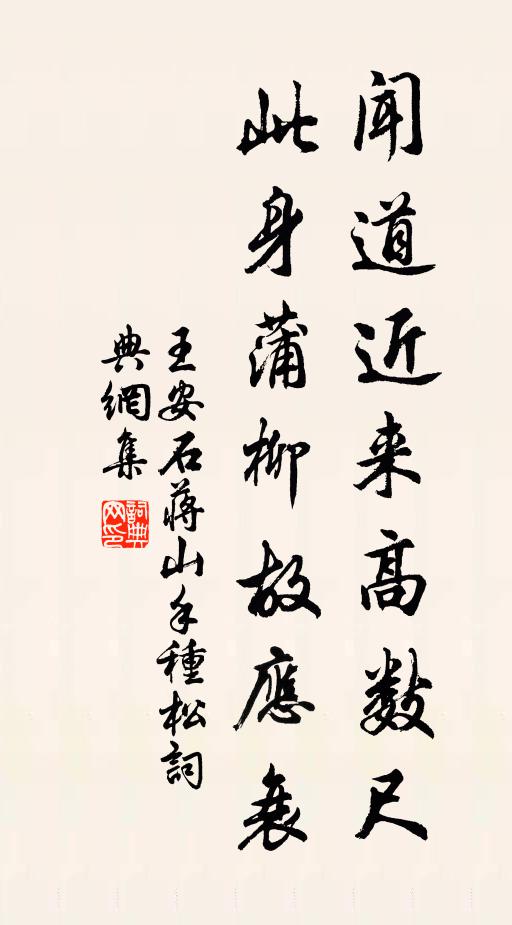 聞道近来高數尺
此身蒲柳故應衰
王安石蔣山手種松詞
典網集
詞典網印